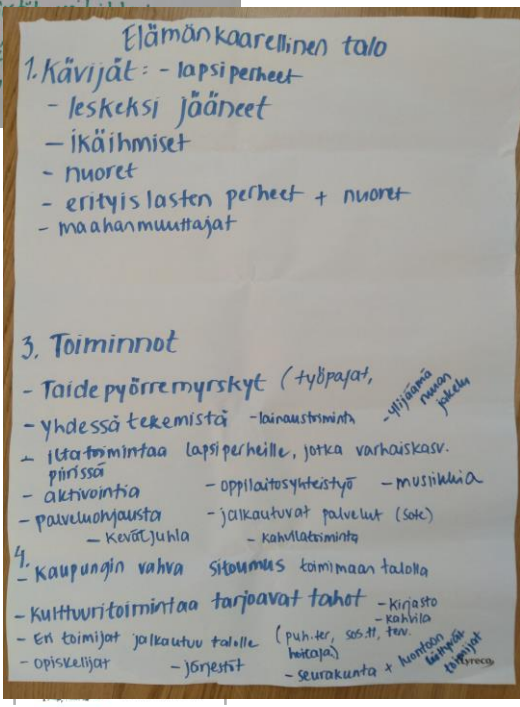 Elämänkaarellinen talo
1. Kävijät: - lapsiperheet
- leskeksi jääneet
- ikäihmiset
- nuoret
- erityislasten perheet + nuoret
- maahanmuuttajat
3. Toiminnot
- Taidepyörremyrskyt (työpajat,
- yhdessä tekemistä - lainaustoiminta - ylijäämä ruuan jakelu
- iltatoimintaa lapsiperheille, jotka varhaiskasv. piirissä
- aktivointia - oppilaitosyhteistyö - musiikkia
- palveluohjausta - jalkautuvat palvelut (sote)
- Kevätjuhla - kahvilatoiminta
4.
- Kaupungin vahva sitoumus toimimaan talolla
- Kulttuuritoimintaa tarjoavat tahot - kirjasto
- kahvila
- Eri toimijat jalkautuu talolle (puh.ter, sos.tt, terv. hoitaja)
- opiskelijat - järjestöt - seurakunta + luontoon liittyvät toimijat